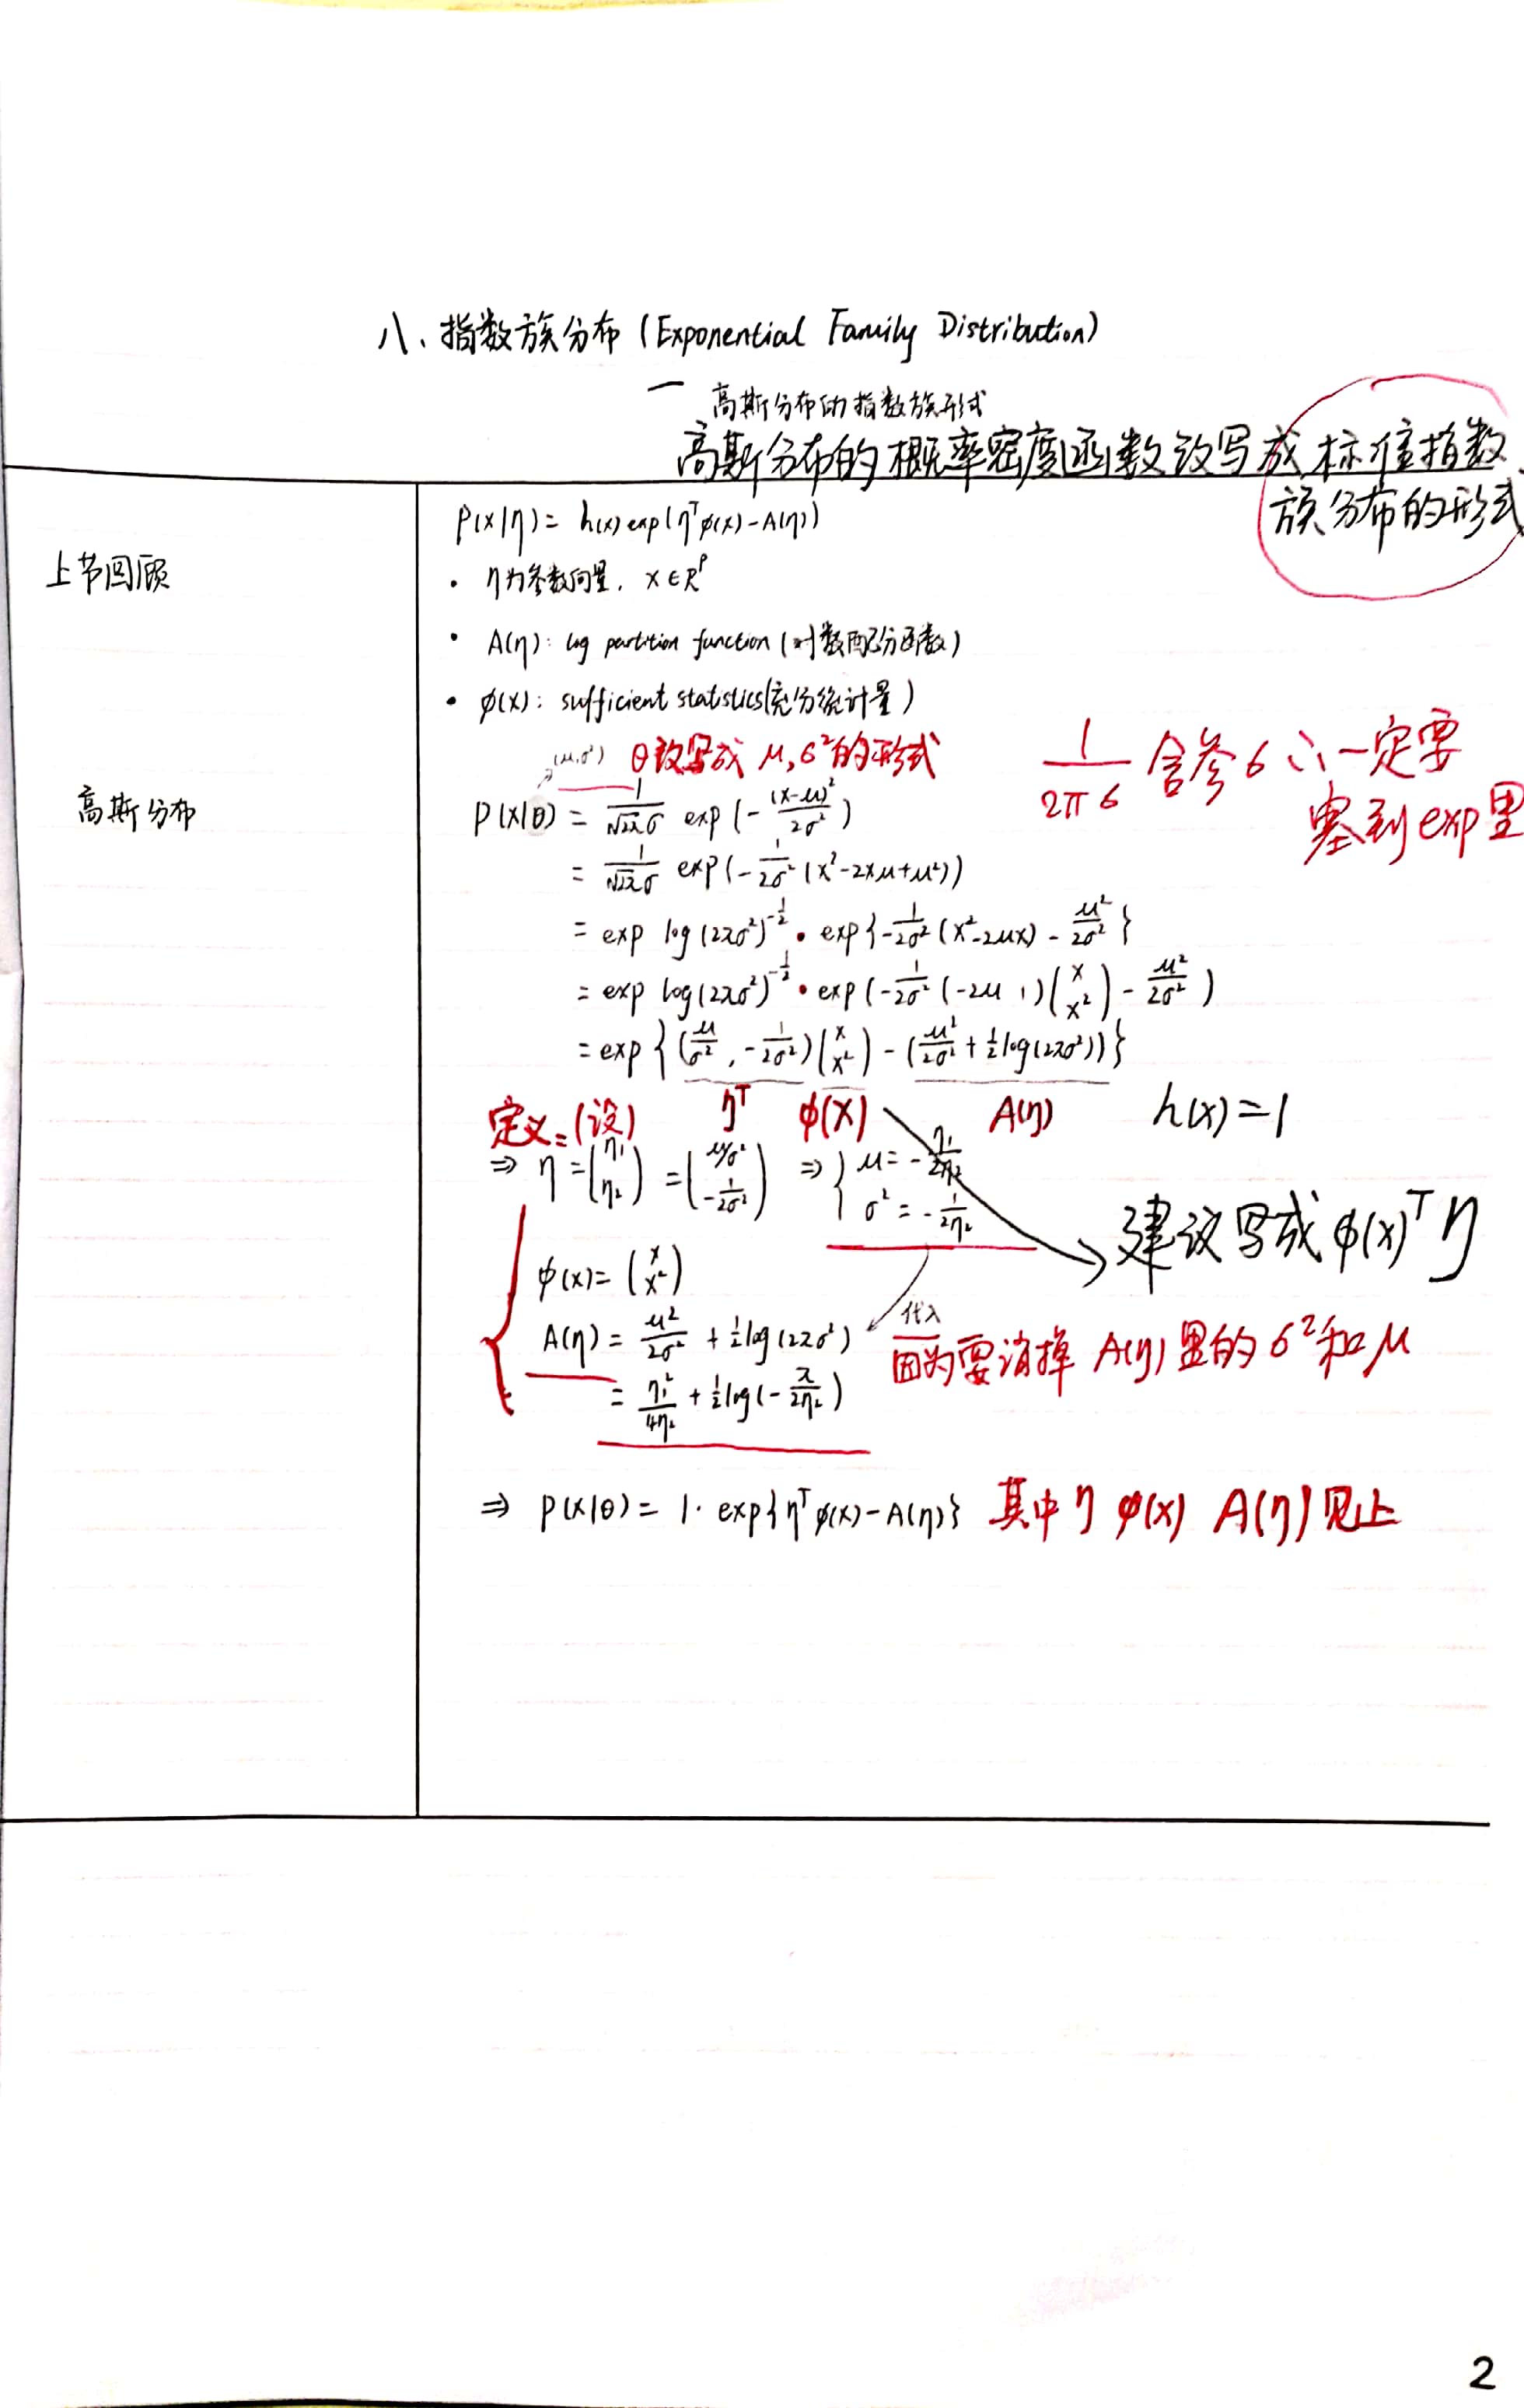 八、指数族分布 (Exponential Family Distribution)
— 高斯分布的指数族形式
高斯分布的概率密度函数改写成标准指数
族分布的形式
上节回顾
P(x|η) = h(x) exp(η^T φ(x) - A(η))
· η为参数向量, x ∈ R^p
· A(η): log partition function (对数配分函数)
· φ(x): sufficient statistics(充分统计量)
(μ,σ²) θ改写成 μ,σ²的形式
1/(2πσ) 含参σ ∴一定要
塞到exp里
高斯分布
P(x|θ) = 1/(√2π σ) exp(-(x-μ)²/2σ²)
= 1/(√2π σ) exp(-1/2σ² (x²-2xμ+μ²))
= exp log(2πσ²)^(-1/2) · exp{-1/2σ² (x²-2μx) - μ²/2σ²}
= exp log(2πσ²)^(-1/2) · exp(-1/2σ² (-2μ 1)(x x²) - μ²/2σ²)
= exp{(μ/σ², -1/2σ²)(x x²) - (μ²/2σ² + 1/2 log(2πσ²))}
定义=(设) η^T φ(x) A(η) h(x)=1
⇒ η = (η₁ η₂) = (μ/σ² -1/2σ²) ⇒ { μ = -η₁/2η₂
σ² = -1/2η₂
建议写成 φ(x)^T η
φ(x) = (x x²)
代入
A(η) = μ²/2σ² + 1/2 log(2πσ²)
因为要消掉 A(η) 里的 σ²和μ
= η₁²/4η₂ + 1/2 log(-π/2η₂)
⇒ P(x|θ) = 1· exp{η^T φ(x) - A(η)} 其中 η φ(x) A(η) 见上
2